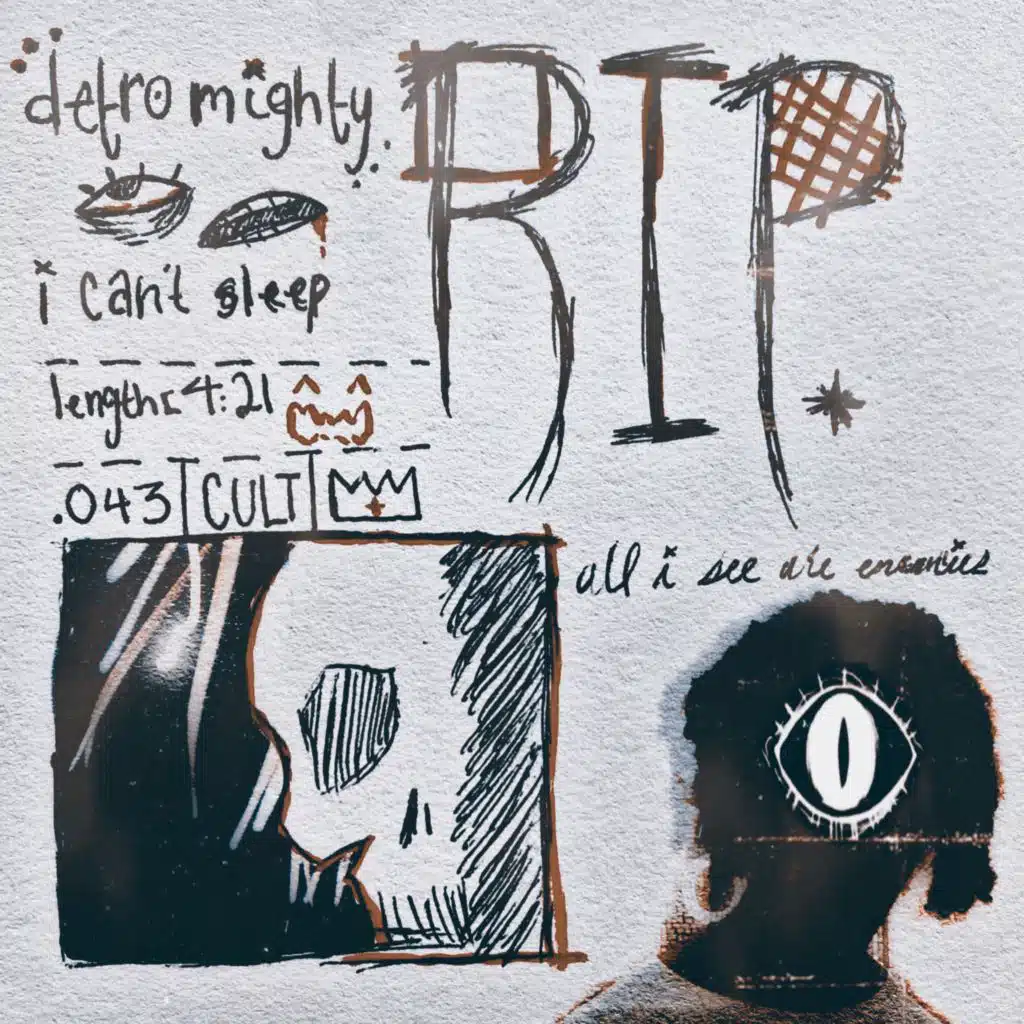 detro mighty
RIP
i can't sleep
length: 4:21
.043 CULT
all i see are enemies